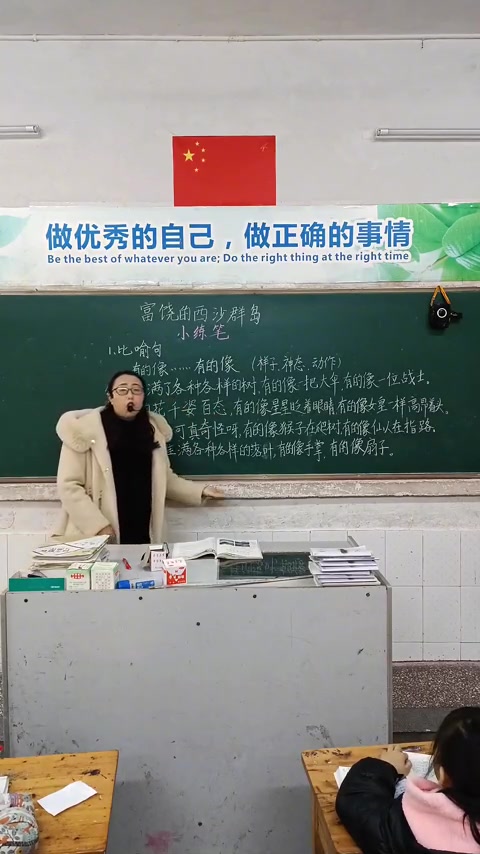 做优秀的自己，做正确的事情
Be the best of whatever you are; Do the right thing at the right time
富饶的西沙群岛
小练笔
1.比喻句
有的像……有的像（样子、神态、动作）
满了各种各样的树,有的像一把大伞,有的像一位战士。
花千姿百态,有的像星星眨着眼睛,有的像女皇一样高贵。
可真奇怪呀,有的像猴子在爬树,有的像仙人在指路。
满各种各样的落叶,有的像手掌,有的像扇子。